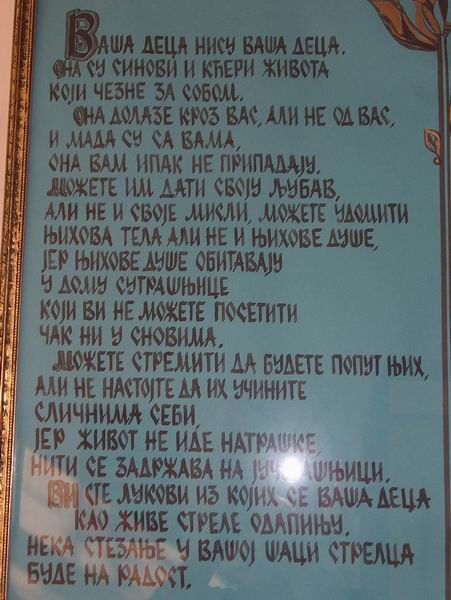 ВАША ДЕЦА НИСУ ВАША ДЕЦА.
ОНА СУ СИНОВИ И КЋЕРИ ЖИВОТА
КОЈИ ЧЕЗНЕ ЗА СОБОМ.
ОНА ДОЛАЗЕ КРОЗ ВАС, АЛИ НЕ ОД ВАС,
И МАДА СУ СА ВАМА,
ОНА ВАМ ИПАК НЕ ПРИПАДАЈУ.
МОЖЕТЕ ИМ ДАТИ СВОЈУ ЉУБАВ,
АЛИ НЕ И СВОЈЕ МИСЛИ, МОЖЕТЕ УДОМИТИ
ЊИХОВА ТЕЛА АЛИ НЕ И ЊИХОВЕ ДУШЕ,
ЈЕР ЊИХОВЕ ДУШЕ ОБИТАВАЈУ
У ДОМУ СУТРАШЊИЦЕ
КОЈИ ВИ НЕ МОЖЕТЕ ПОСЕТИТИ
ЧАК НИ У СНОВИМА.
МОЖЕТЕ СТРЕМИТИ ДА БУДЕТЕ ПОПУТ ЊИХ,
АЛИ НЕ НАСТОЈТЕ ДА ИХ УЧИНИТЕ
СЛИЧНИМА СЕБИ,
ЈЕР ЖИВОТ НЕ ИДЕ НАТРАШКЕ,
НИТИ СЕ ЗАДРЖАВА НА
ВИ СТЕ ЛУКОВИ ИЗ КОЈИХ СЕ ВАША ДЕЦА
КАО ЖИВЕ СТРЕЛЕ ОДАПИЊУ.
НЕКА СТЕЗАЊЕ У ВАШОЈ ШАЦИ СТРЕЛЦА
БУДЕ НА РАДОСТ.